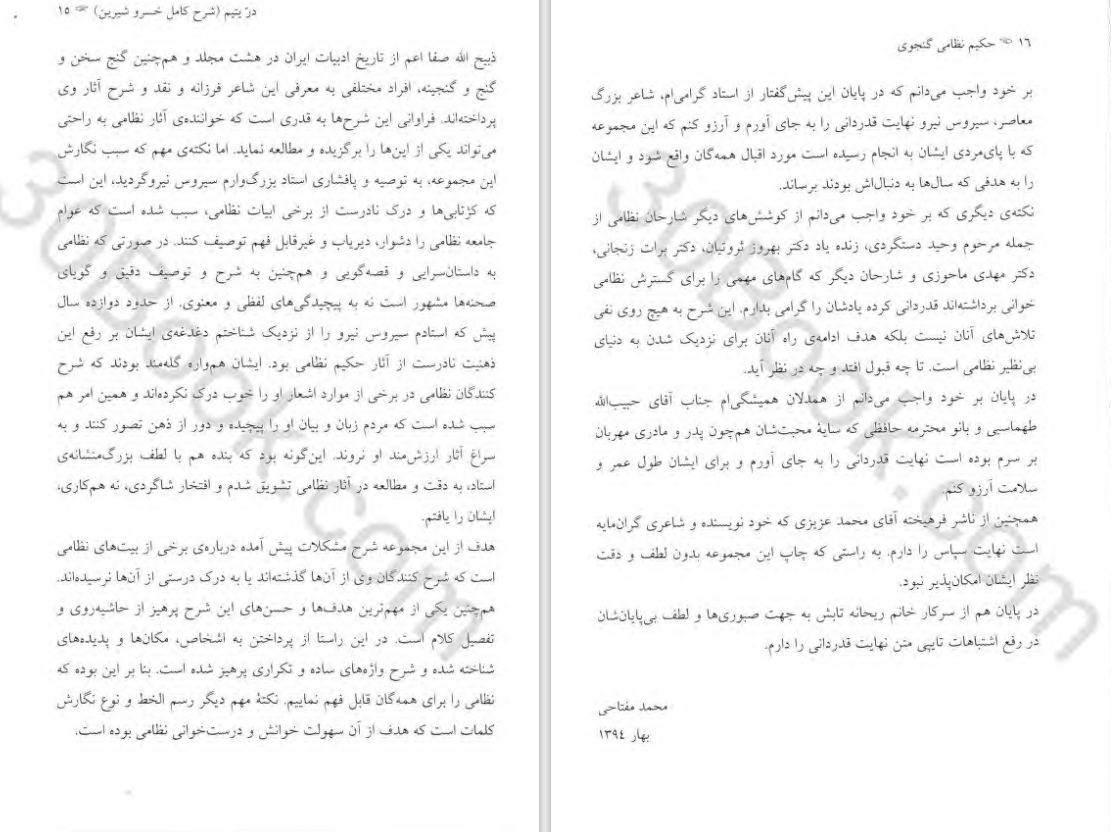 در یتیم (شرح کامل خسرو شیرین) ۱۵
ذبیح الله صفا اعم از تاریخ ادبیات ایران در هشت مجلد و هم‌چنین گنج سخن و
گنج و گنجینه، افراد مختلفی به معرفی این شاعر فرزانه و نقد و شرح آثار وی
پرداخته‌اند. فراوانی این شرح‌ها به قدری است که خواننده‌ی آثار نظامی به راحتی
می‌تواند یکی از این‌ها را برگزیده و مطالعه نماید. اما نکته‌ی مهم که سبب نگارش
این مجموعه، به توصیه و پافشاری استاد بزرگ‌وارم سیروس نیروگردید، این است
که کژتابی‌ها و درک نادرست از برخی ابیات نظامی، سبب شده است که عوام
جامعه نظامی را دشوار، دیریاب و غیرقابل فهم توصیف کنند. در صورتی که نظامی
به داستان‌سرایی و قصه‌گویی و هم‌چنین به شرح و توصیف دقیق و گویای
صحنه‌ها مشهور است نه به پیچیدگی‌های لفظی و معنوی. از حدود دوازده سال
پیش که استادم سیروس نیرو را از نزدیک شناختم دغدغه‌ی ایشان بر رفع این
ذهنیت نادرست از آثار حکیم نظامی بود. ایشان هم‌واره گله‌مند بودند که شرح
کنندگان نظامی در برخی از موارد اشعار او را خوب درک نکرده‌اند و همین امر هم
سبب شده است که مردم زبان و بیان او را پیچیده و دور از ذهن تصور کنند و به
سراغ آثار ارزش‌مند او نروند. این‌گونه بود که بنده هم با لطف بزرگ‌منشانه‌ی
استاد، به دقت و مطالعه در آثار نظامی تشویق شدم و افتخار شاگردی، نه هم‌کاری،
ایشان را یافتم.
هدف از این مجموعه شرح مشکلات پیش آمده درباره‌ی برخی از بیت‌های نظامی
است که شرح کنندگان وی از آن‌ها گذشته‌اند یا به درک درستی از آن‌ها نرسیده‌اند.
هم‌چنین یکی از مهم‌ترین هدف‌ها و حسن‌های این شرح پرهیز از حاشیه‌روی و
تفصیل کلام است. در این راستا از پرداختن به اشخاص، مکان‌ها و پدیده‌های
شناخته شده و شرح واژه‌های ساده و تکراری پرهیز شده است. بنا بر این بوده که
نظامی را برای همه‌گان قابل فهم نماییم. نکتهٔ مهم دیگر رسم الخط و نوع نگارش
کلمات است که هدف از آن سهولت خوانش و درست‌خوانی نظامی بوده است.
۱۶ حکیم نظامی گنجوی
بر خود واجب می‌دانم که در پایان این پیش‌گفتار از استاد گرامی‌ام، شاعر بزرگ
معاصر، سیروس نیرو نهایت قدردانی را به جای آورم و آرزو کنم که این مجموعه
که با پای‌مردی ایشان به انجام رسیده است مورد اقبال همه‌گان واقع شود و ایشان
را به هدفی که سال‌ها به دنبال‌اش بودند برساند.
نکته‌ی دیگری که بر خود واجب می‌دانم از کوشش‌های دیگر شارحان نظامی از
جمله مرحوم وحید دستگردی، زنده یاد دکتر بهروز ثروتیان، دکتر برات زنجانی،
دکتر مهدی ماحوزی و شارحان دیگر که گام‌های مهمی را برای گسترش نظامی
خوانی برداشته‌اند قدردانی کرده یادشان را گرامی بدارم. این شرح به هیچ روی نفی
تلاش‌های آنان نیست بلکه هدف ادامه‌ی راه آنان برای نزدیک شدن به دنیای
بی‌نظیر نظامی است. تا چه قبول افتد و چه در نظر آید.
در پایان بر خود واجب می‌دانم از همدلان همیشگی‌ام جناب آقای حبیب‌الله
طهماسبی و بانو محترمه حافظی که سایهٔ محبت‌شان هم‌چون پدر و مادری مهربان
بر سرم بوده است نهایت قدردانی را به جای آورم و برای ایشان طول عمر و
سلامت آرزو کنم.
همچنین از ناشر فرهیخته آقای محمد عزیزی که خود نویسنده و شاعری گران‌مایه
است نهایت سپاس را دارم. به راستی که چاپ این مجموعه بدون لطف و دقت
نظر ایشان امکان‌پذیر نبود.
در پایان هم از سرکار خانم ریحانه تابش به جهت صبوری‌ها و لطف بی‌پایان‌شان
در رفع اشتباهات تایپی متن نهایت قدردانی را دارم.
محمد مفتاحی
بهار ۱۳۹٤
30Book.com
30Book.com